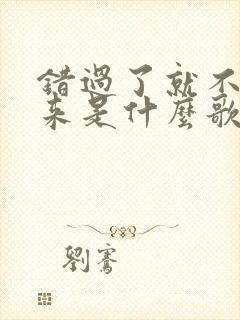 錯過了就不
來是什麼歌
劉騫